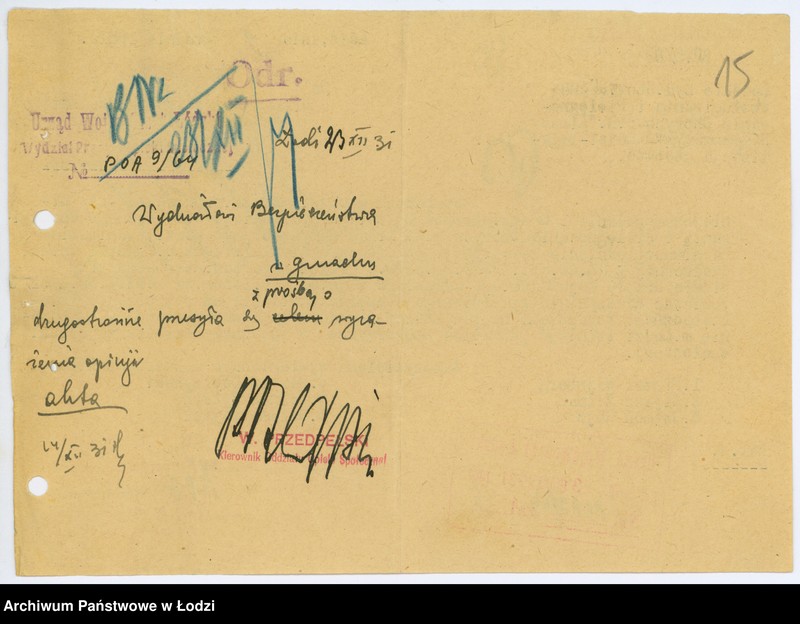 15
Odr.
Urząd Wo
Wydział Pr
№ POA 9/64
Łódź 23 XII 31
Wydziałowi Bezpieczeństwa
w gmachu
z prośbą o
drugostronne przesyła się celem wyra-
żenia opinji
akta
24/XII 31
W. PRZEDPEŁSKI
Kierownik Oddziału Opieki Społecznej
Archiwum Państwowe w Łodzi